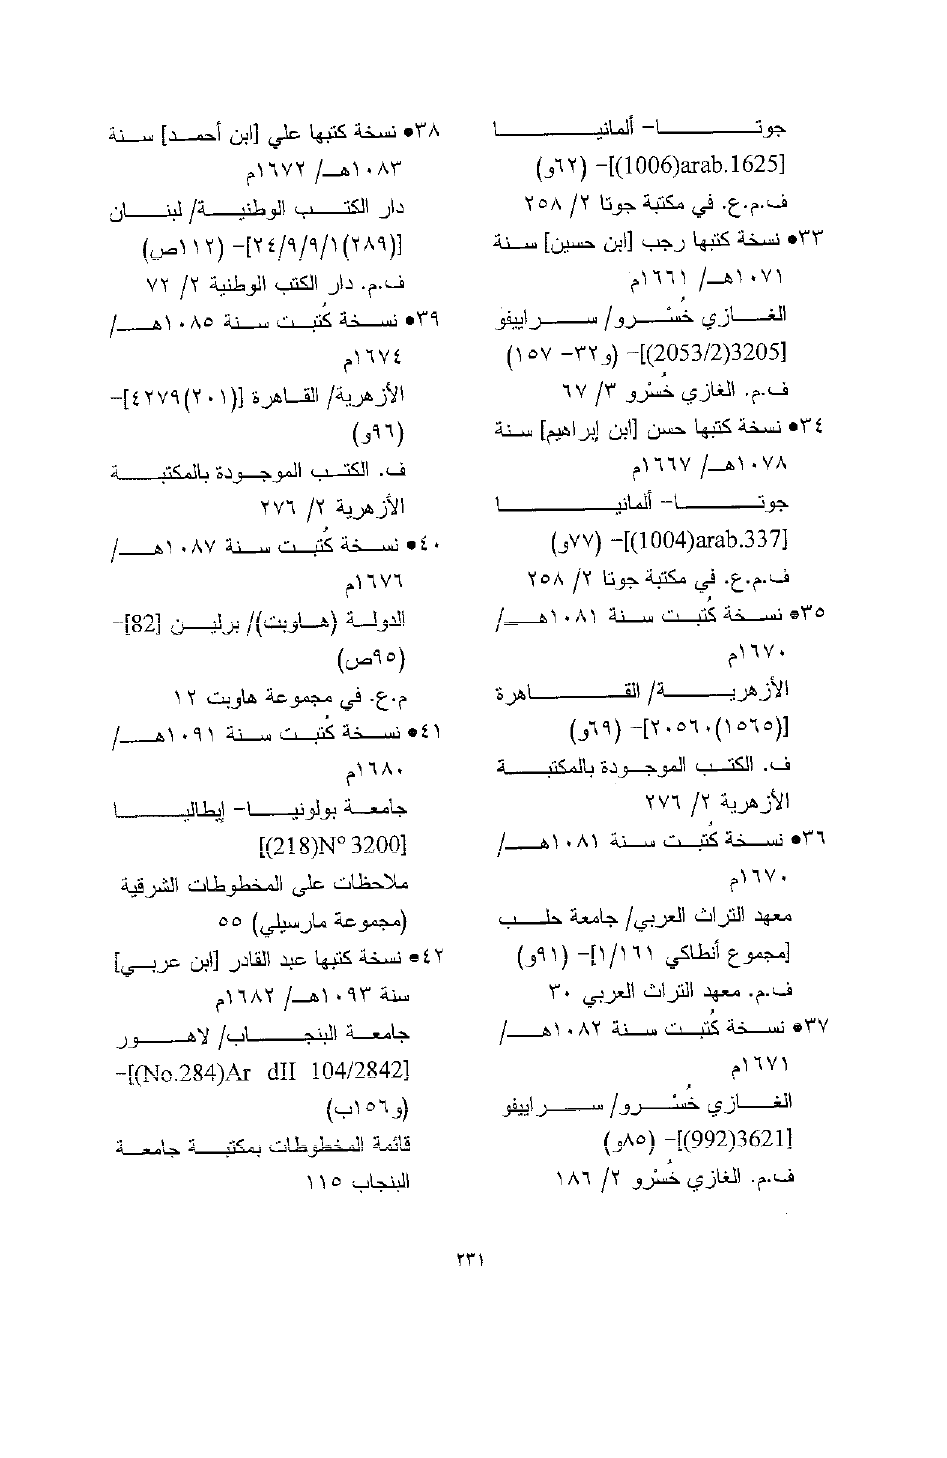 جوتا- ألمانيا
[1625.arab(1006)]- (٦٢و)
ف.م.ع. في مكتبة جوتا ٢/ ٢٥٨
٣٣• نسخة كتبها رجب [ابن حسين] سنة
١٠٧١هـ/ ١٦٦١م
الغازي خُسْرو/ سراييفو
[3205(2053/2)]- (و٣٢- ١٥٧)
ف.م. الغازي خُسْرو ٣/ ٦٧
٣٤• نسخة كتبها حسن [ابن إبراهيم] سنة
١٠٧٨هـ/ ١٦٦٧م
جوتا- ألمانيا
[337.arab(1004)]- (٧٧و)
ف.م.ع. في مكتبة جوتا ٢/ ٢٥٨
٣٥• نسخة كُتبت سنة ١٠٨١هـ/
١٦٧٠م
الأزهرية/ القاهرة
[(١٥٦٥)٢٠٥٦٠]- (٦٩و)
ف. الكتب الموجودة بالمكتبة
الأزهرية ٢/ ٢٧٦
٣٦• نسخة كُتبت سنة ١٠٨١هـ/
١٦٧٠م
معهد التراث العربي/ جامعة حلب
[مجموع أنطاكي ١/١٦١]- (٩١و)
ف.م. معهد التراث العربي ٣٠
٣٧• نسخة كُتبت سنة ١٠٨٢هـ/
١٦٧١م
الغازي خُسْرو/ سراييفو
[3621(992)]- (٨٥و)
ف.م. الغازي خُسْرو ٢/ ١٨٦
٣٨• نسخة كتبها علي [ابن أحمد] سنة
١٠٨٣هـ/ ١٦٧٢م
دار الكتب الوطنية/ لبنان
[(٢٨٩)٢٤/٩/٩/١]- (١١٢ص)
ف.م. دار الكتب الوطنية ٢/ ٧٢
٣٩• نسخة كُتبت سنة ١٠٨٥هـ/
١٦٧٤م
الأزهرية/ القاهرة [(٢٠١)٤٢٧٩]-
(٩٦و)
ف. الكتب الموجودة بالمكتبة
الأزهرية ٢/ ٢٧٦
٤٠• نسخة كُتبت سنة ١٠٨٧هـ/
١٦٧٦م
الدولة (هاوبت)/ برلين [82]-
(٩٥ص)
م.ع. في مجموعة هاوبت ١٢
٤١• نسخة كُتبت سنة ١٠٩١هـ/
١٦٨٠م
جامعة بولونيا- إيطاليا
[(218)N° 3200]
ملاحظات على المخطوطات الشرقية
(مجموعة مارسيلي) ٥٥
٤٢• نسخة كتبها عبد القادر [ابن عربي]
سنة ١٠٩٣هـ/ ١٦٨٢م
جامعة البنجاب/ لاهور
[(No.284)Ar dII 104/2842]-
(و١٥٦ب)
قائمة المخطوطات بمكتبة جامعة
البنجاب ١١٥
٢٣١